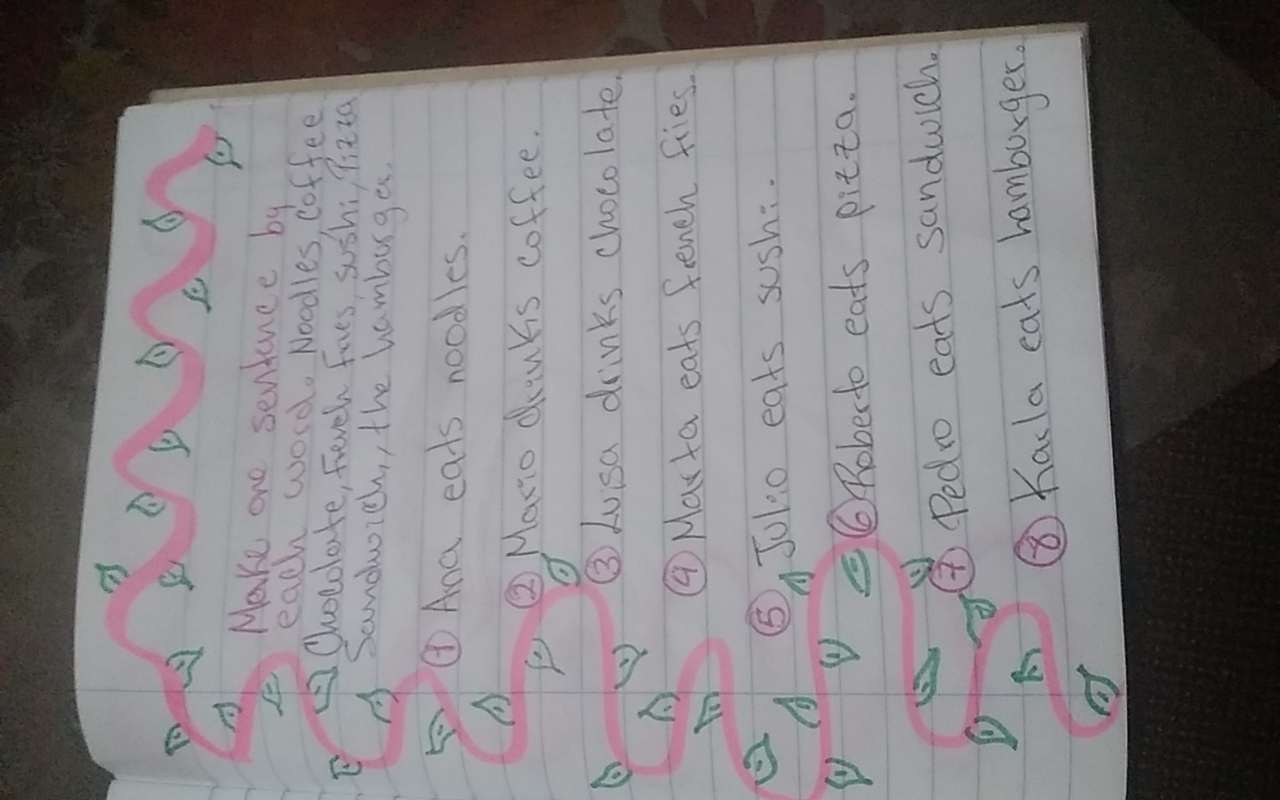 Make one sentence by
each word. Noodles, coffee
Chocolate, french fries, sushi, Pizza
Sandwich, the hamburger.
① Ana eats noodles.
② Mario drinks coffee.
③ Luisa drinks chocolate.
④ Marta eats french fries.
⑤ Julio eats sushi.
⑥ Roberto eats pizza.
⑦ Pedro eats sandwich.
⑧ Karla eats hamburger.